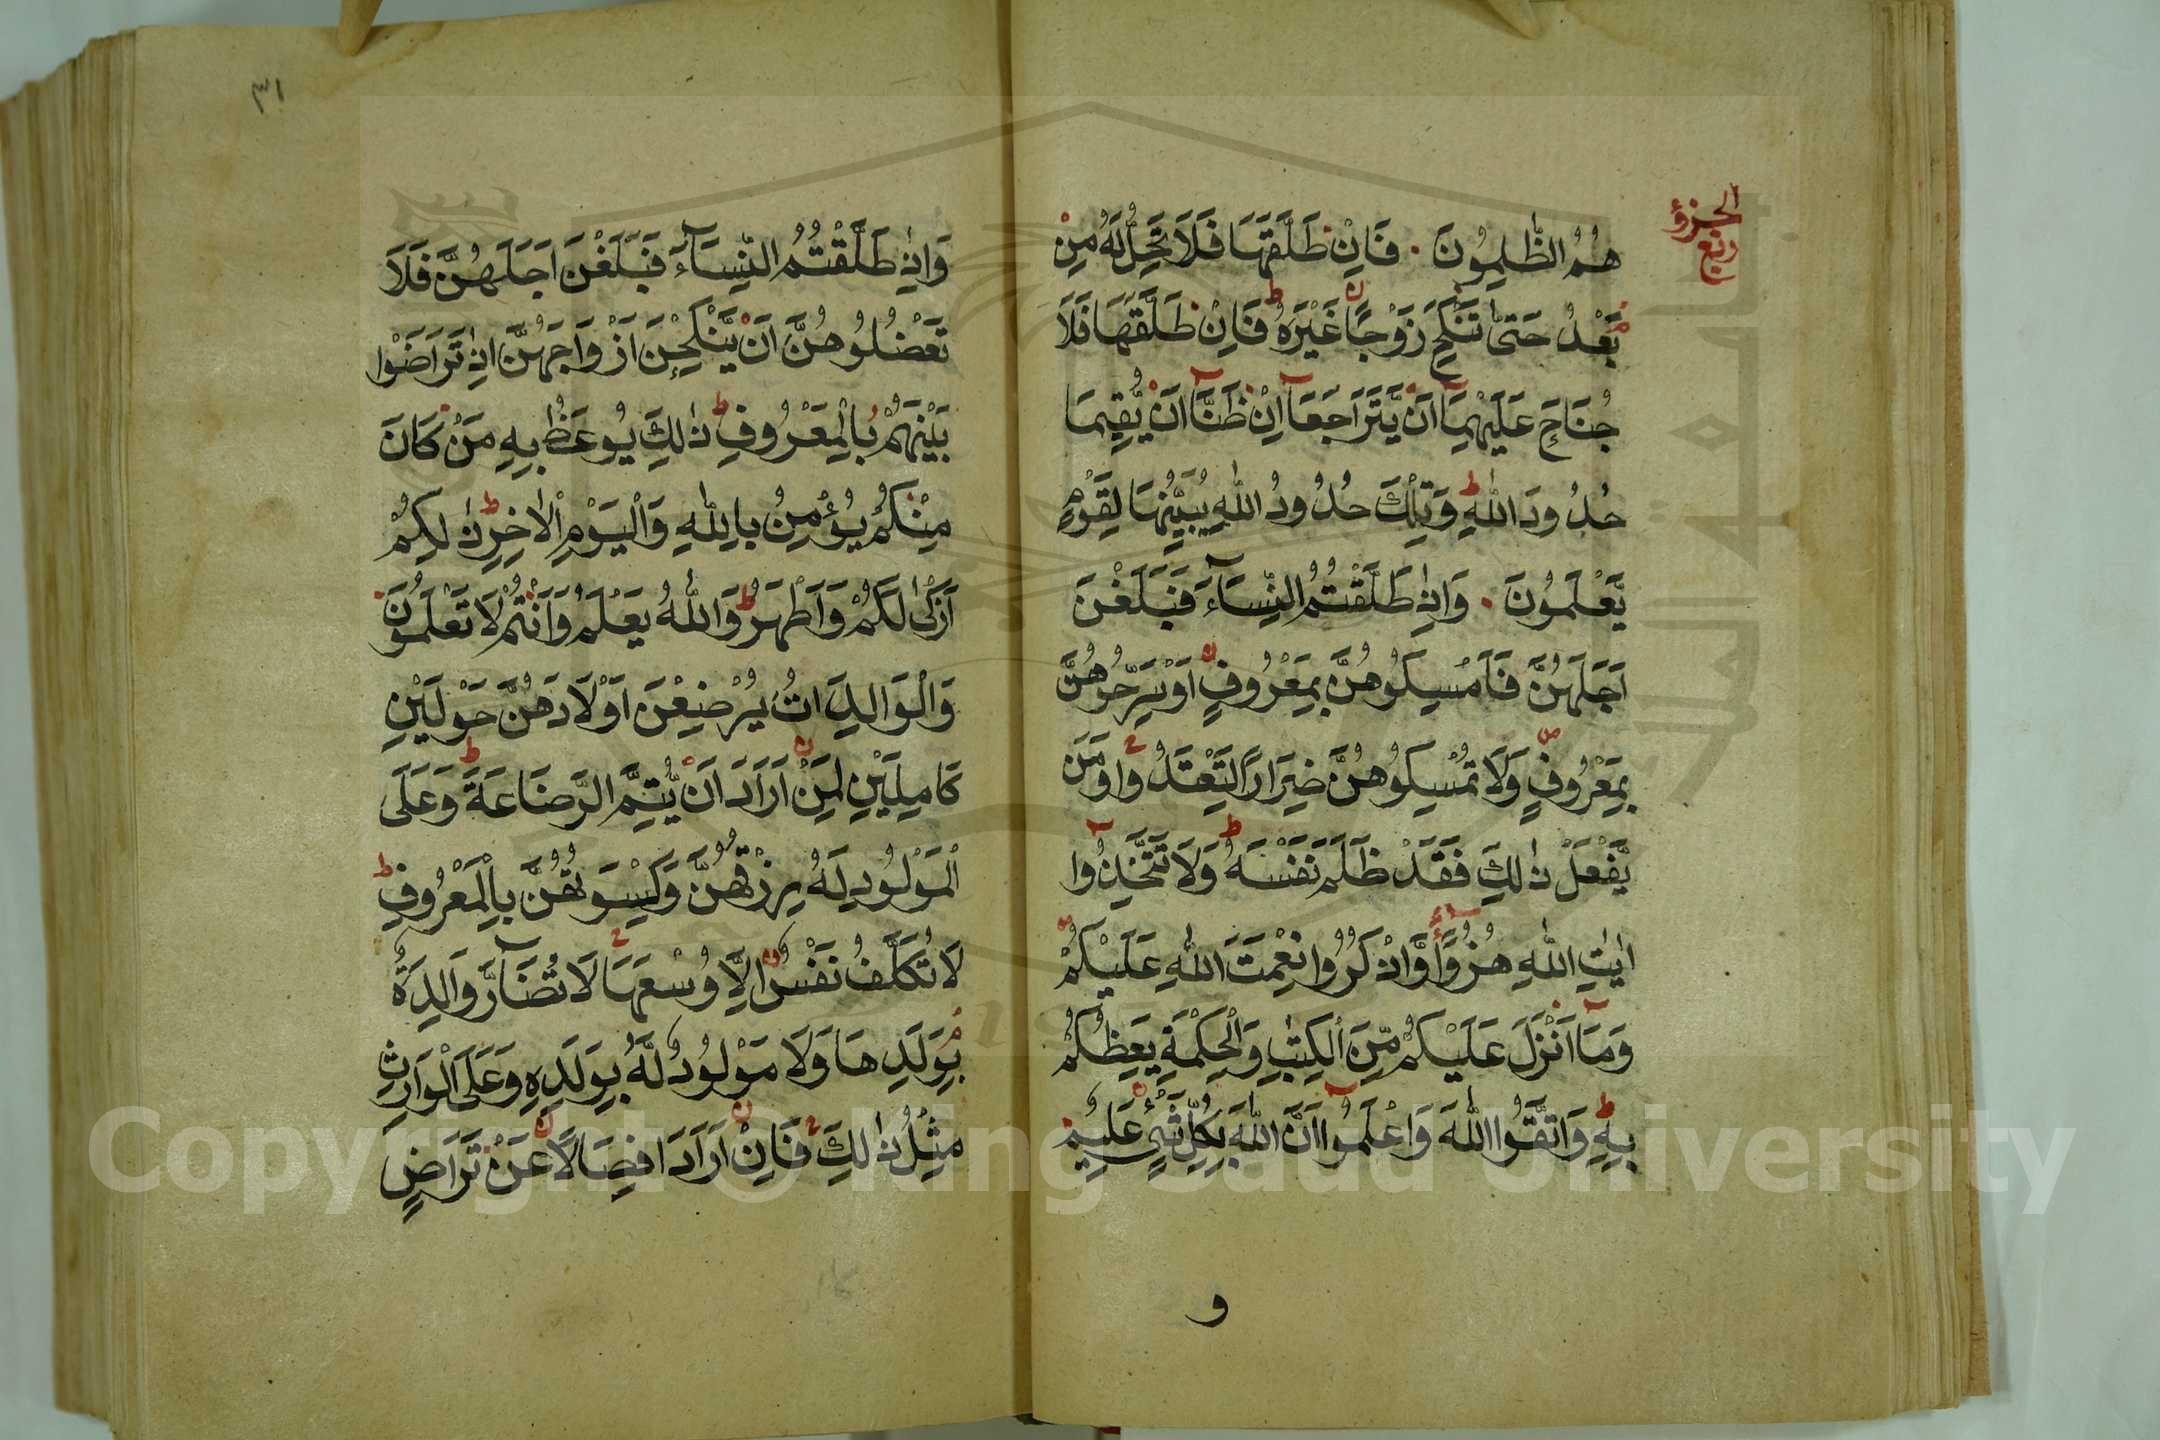 الجزؤ
ربع
هُمُ الظّٰلِمُونَ۰ فَاِنْ طَلَّقَهَا فَلَا تَحِلُّ لَهُ مِنْ
بَّعْدُ حَتّٰى تَنْكِحَ زَوْجًا غَيْرَهُ ط فَاِنْ طَلَّقَهَا فَلَا
جُنَاحَ عَلَيْهِمَآ اَنْ يَّتَرَاجَعَآ اِنْ ظَنَّآ اَنْ يُّقِيمَا
حُدُودَ اللّٰهِ ط وَتِلْكَ حُدُودُ اللّٰهِ يُبَيِّنُهَا لِقَوْمٍ
يَّعْلَمُونَ۰ وَاِذَا طَلَّقْتُمُ النِّسَآءَ فَبَلَغْنَ
اَجَلَهُنَّ فَاَمْسِكُوهُنَّ بِمَعْرُوفٍ اَوْ سَرِّحُوهُنَّ
بِمَعْرُوفٍ وَلَا تُمْسِكُوهُنَّ ضِرَارًا لِّتَعْتَدُوا وَمَنْ
يَّفْعَلْ ذٰلِكَ فَقَدْ ظَلَمَ نَفْسَهُ ط وَلَا تَتَّخِذُوٓا
اٰيٰتِ اللّٰهِ هُزُوًا وَّاذْكُرُوا نِعْمَتَ اللّٰهِ عَلَيْكُمْ
وَمَآ اَنْزَلَ عَلَيْكُمْ مِّنَ الْكِتٰبِ وَالْحِكْمَةِ يَعِظُكُمْ
بِهِ ط وَاتَّقُوا اللّٰهَ وَاعْلَمُوٓا اَنَّ اللّٰهَ بِكُلِّ شَىْءٍ عَلِيمٌ
و
٣١
وَاِذَا طَلَّقْتُمُ النِّسَآءَ فَبَلَغْنَ اَجَلَهُنَّ فَلَا
تَعْضُلُوهُنَّ اَنْ يَّنْكِحْنَ اَزْوَاجَهُنَّ اِذَا تَرَاضَوْا
بَيْنَهُمْ بِالْمَعْرُوفِ ط ذٰلِكَ يُوعَظُ بِهِ مَنْ كَانَ
مِنْكُمْ يُؤْمِنُ بِاللّٰهِ وَالْيَوْمِ الْاٰخِرِ ط ذٰلِكُمْ
اَزْكٰى لَكُمْ وَاَطْهَرُ ط وَاللّٰهُ يَعْلَمُ وَاَنْتُمْ لَا تَعْلَمُونَ
وَالْوَالِدَاتُ يُرْضِعْنَ اَوْلَادَهُنَّ حَوْلَيْنِ
كَامِلَيْنِ لِمَنْ اَرَادَ اَنْ يُّتِمَّ الرَّضَاعَةَ ط وَعَلَى
الْمَوْلُودِ لَهُ رِزْقُهُنَّ وَكِسْوَتُهُنَّ بِالْمَعْرُوفِ ط
لَا تُكَلَّفُ نَفْسٌ اِلَّا وُسْعَهَا لَا تُضَآرَّ وَالِدَةٌ
بِوَلَدِهَا وَلَا مَوْلُودٌ لَّهُ بِوَلَدِهِ وَعَلَى الْوَارِثِ
مِثْلُ ذٰلِكَ فَاِنْ اَرَادَا فِصَالًا عَنْ تَرَاضٍ
Copyright © King Saud University